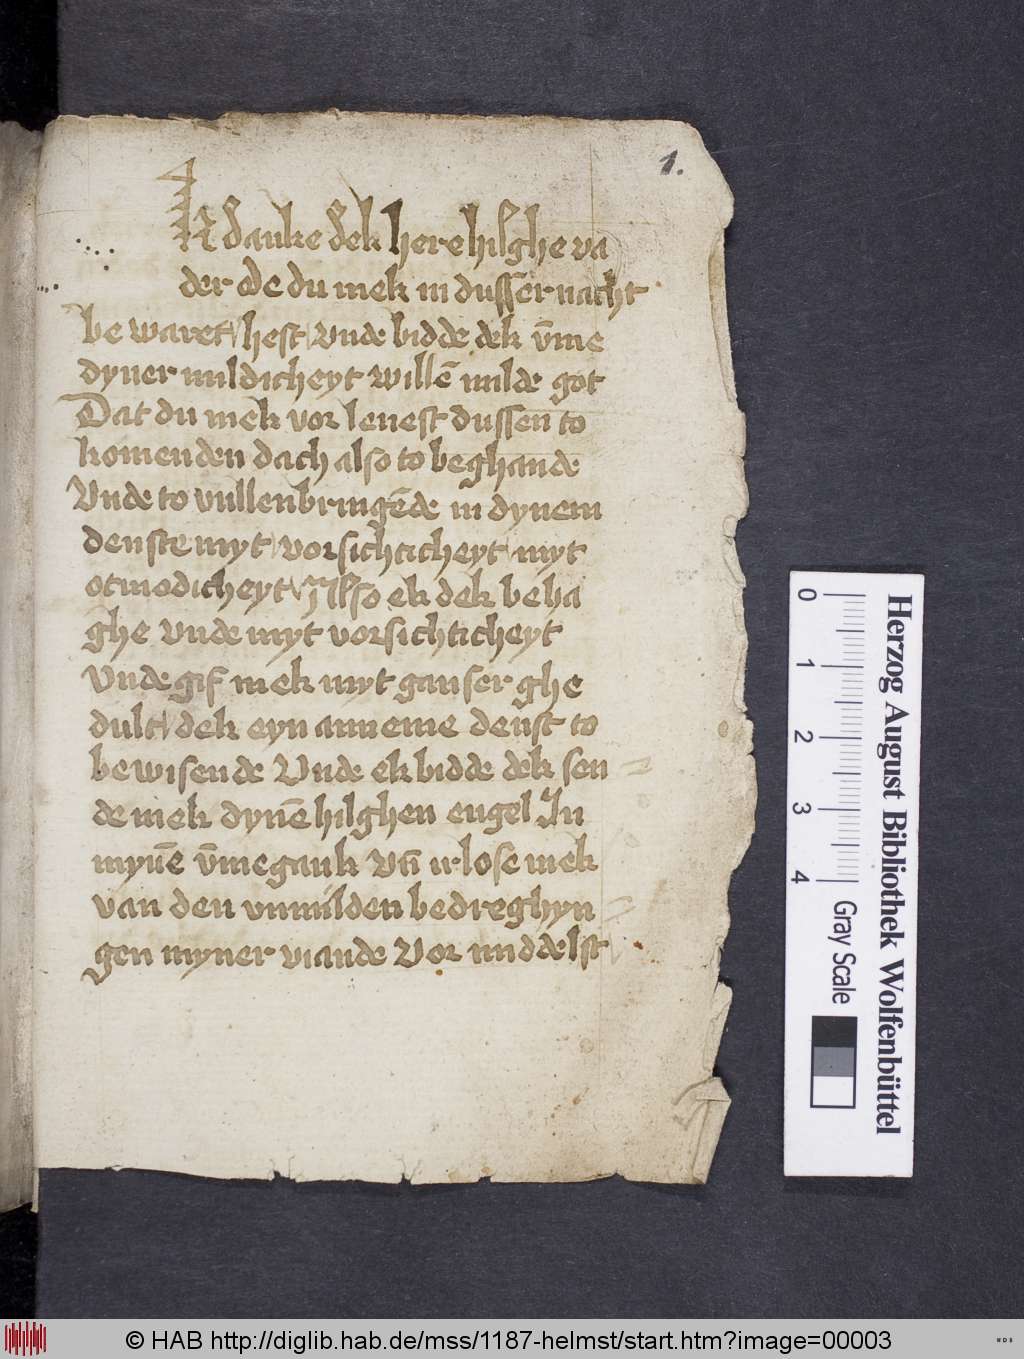 1.
Ik danke dek here hilghe va
der de du mek in dusser nacht
be waret hest vnde bidde dek v̄me
dyner mildicheyt willē milde got
Dat du mek vor lenest dussen to
komenden dach also to beghande
Vnde to vullenbringēde in dynem
denste myt vorsichticheyt myt
otmodicheyt Also ek dek beha
ghe vnde myt vorsichticheyt
Vnde gif mek myt ganser ghe
dult dek eyn anneme denst to
bewisende Vnde ek bidde dek sen
de mek dynē hilghen engel In
mynē v̄megank Vn̄ irlose mek
van den vnmilden bedreghyn
gen myner viande Vor middelst
Herzog August Bibliothek Wolfenbüttel
0 1 2 3 4 Gray Scale
© HAB http://diglib.hab.de/mss/1187-helmst/start.htm?image=00003
WDB